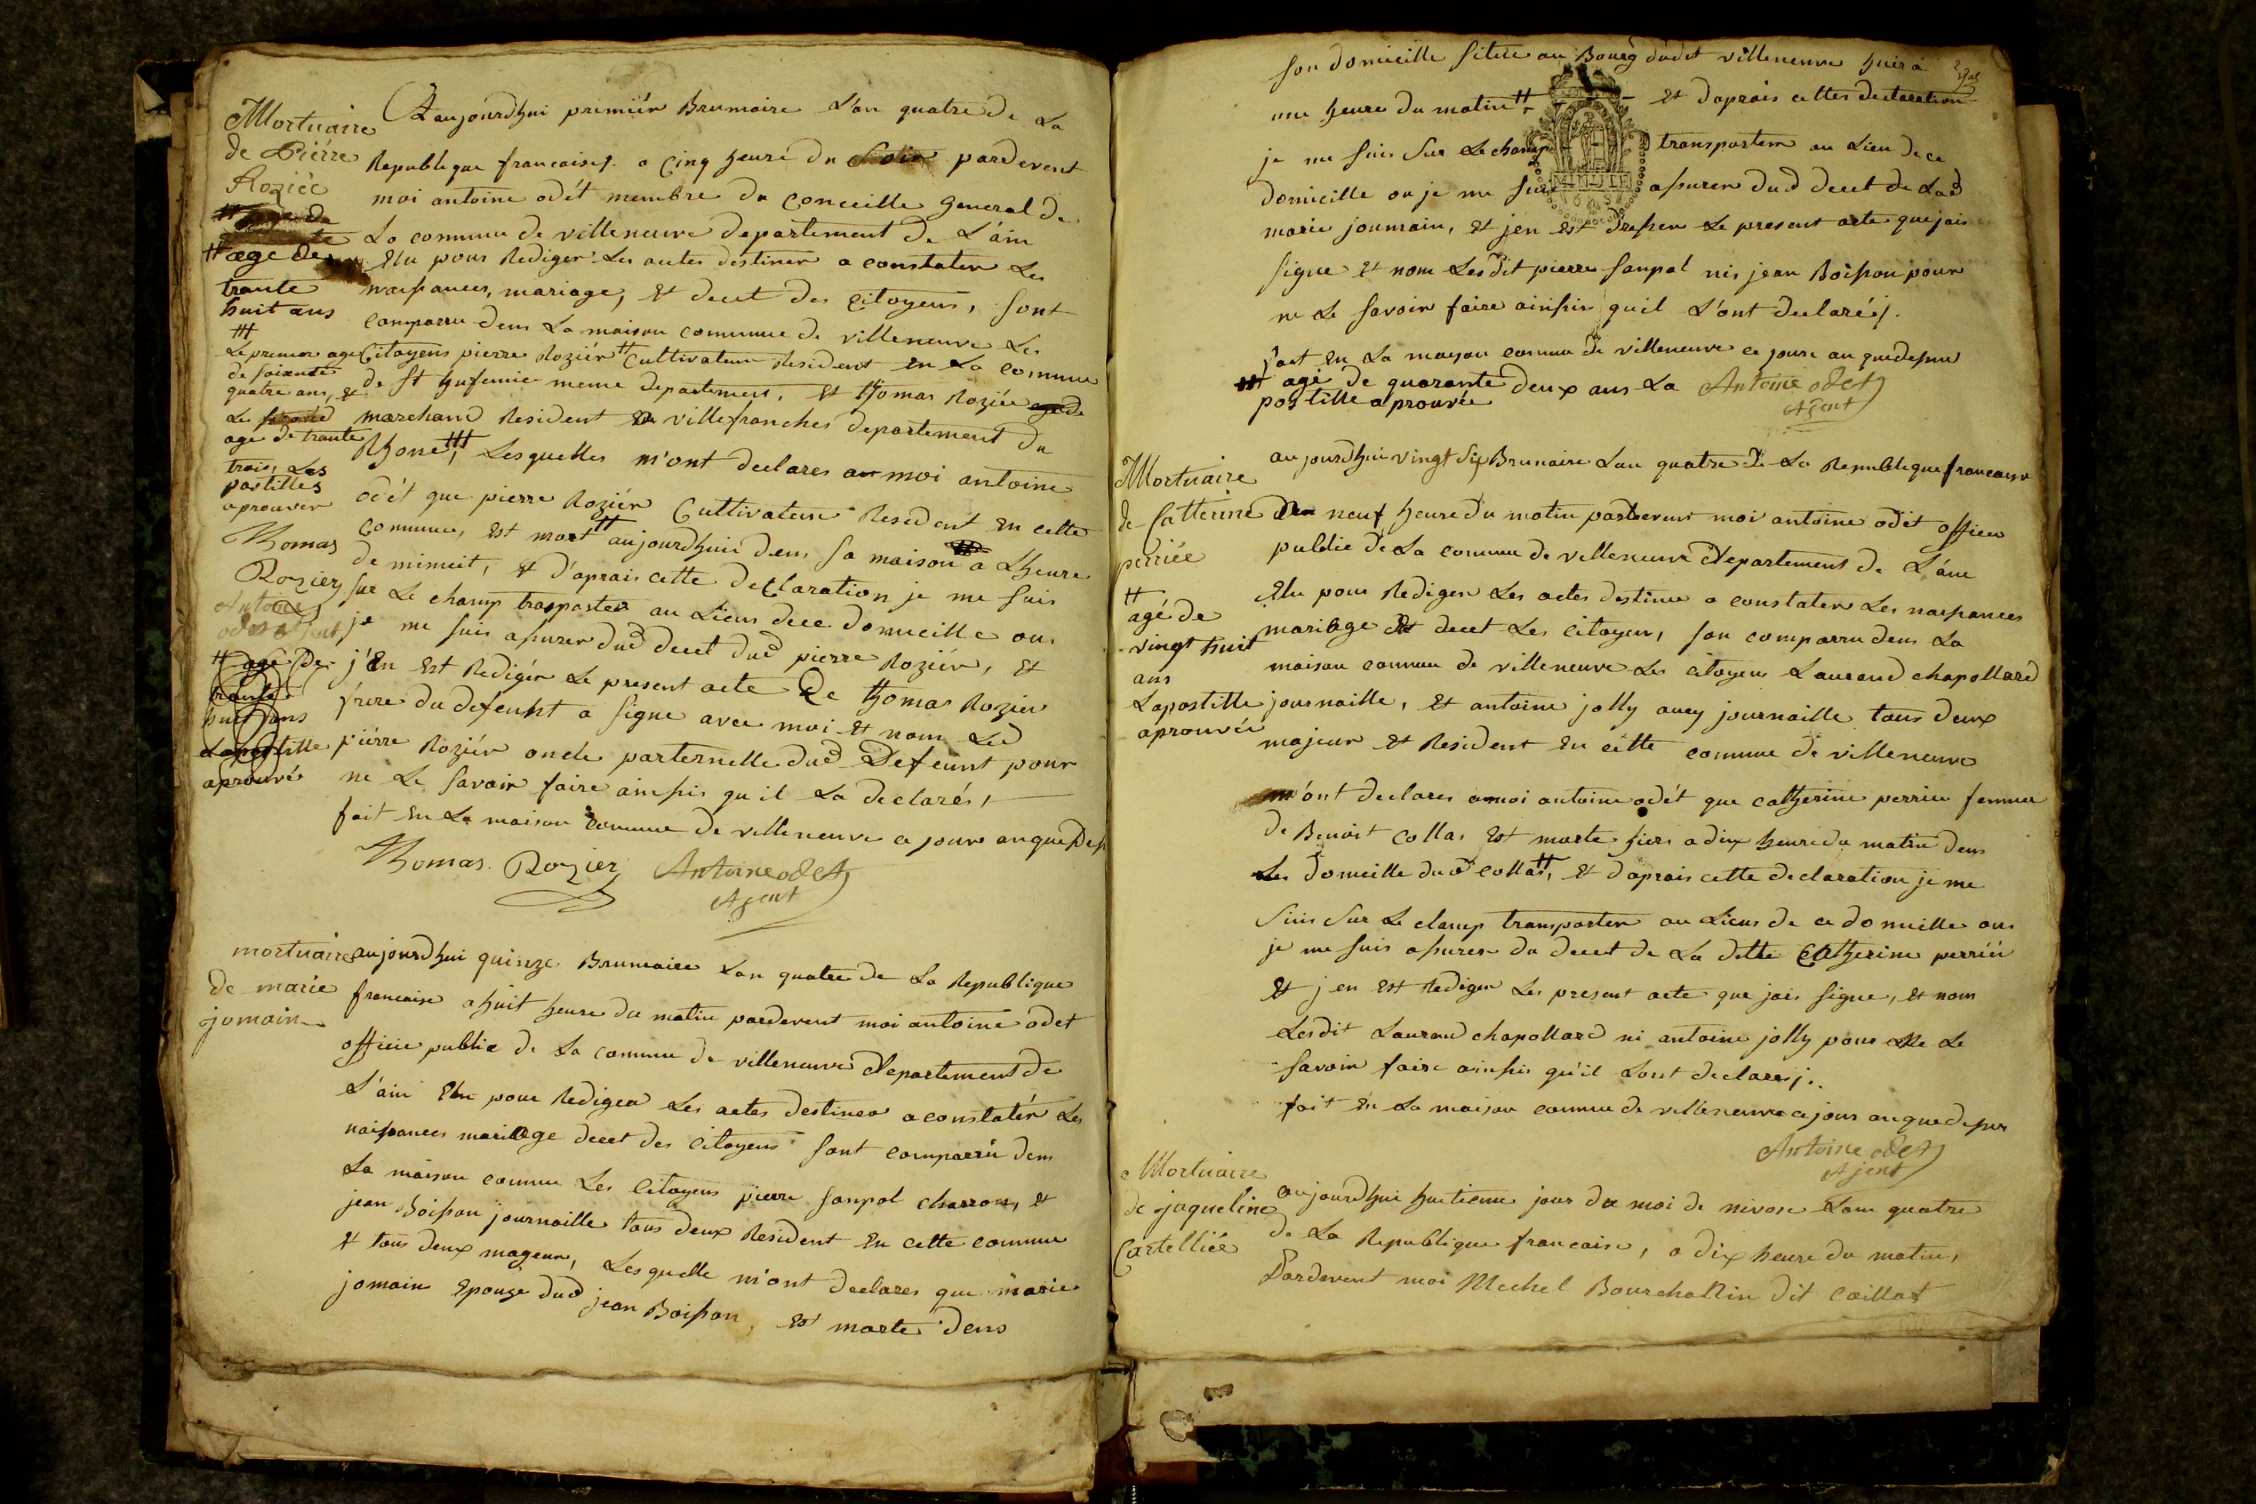 Mortuaire
de Piérre
Roziér
# age de
traute
huit ans
##
Le premier age
de soixente
quatre ans, et
Le second
age de trante
trois, Les
postilles
aprouver
Thomas
Rozier
Antoine
odet agent
# age de
trante
huit ans
Lapostille
aprouvé
aujourdhui premiér Brumaire L'an quatre de La
Republique francaise, a Cinq heure du soir pardevent
moi antoine odét membre du Conceille General de
La commune de villeneuve departement de L'ain
Elu pour Rediger Les actes destiner a constater Les
naissances, mariage, et decet des Citoyens, sont
comparru dens La maison commune de villeneuve Les
Citoyens pierre Roziér # Cultivateur Resident en La commune
de St Eufemie meme departement, et thomas Roziér age de
marchand Resident a villefranches departement du
Rhone ##, Lesquelles m'ont declares a moi antoine
odét que pierre Roziér Cultivateur Resident en cette
commune, est mort # aujourdhui dens sa maison a Lheure
de minuit, et d'aprais cette declaration je me suis
sur Le champ trasporter au Lieus dece domicille ou
je me suis assurer dud decet dud pierre Roziér, et
j'en est Redigér Le present acte que thomas Rozier
frere du defeunt a signe avec moi et nom Led
piérre Roziér oncle parternelle dud Defeunt pour
ne Le savoir faire ainssis qu'il La declarés,
fait en La maison commune de villeneuve ce jour anquedess
Thomas. Rozier Antoine odet
Agent
mortuaire
de marie
jomain
aujourdhui quinze Brumaire Lan quatre de La Republique
francaise a huit heure du matin pardevent moi antoine odet
officie public de La commune de villeneuve departement de
L'ain Elu pour Rediger Les actes destiner a constatér Les
naissances mariage decet des Citoyens sont comparru dens
La maison commune Les Citoyens pierre sanpol charron, et
jean Boisson journaille tous deux Resident en cette commune
et tous deux mageur, Lesquelle m'ont declares que marie
jomain Epouze dud jean Boisson, est morte dens
son domicille situé au Bourg dudit villeneuve hier a
une heure du matin # et daprais cettes declaration
je me suis sur Le champ transporter au Lieu de ce
domicille ou je me suis assurer dud decet de Lad
marie joumain, et jen est dresser Le present acte que jais
signe et nom Lesdit pierre sanpol nis jean Boisson pour
ne Le savoir faire ainssis quil L'ont declaré.
fait en La maison commune de villeneuve ce jours anquedessus
## agé de quarante deux ans La
postille aprouvée
Antoine odet
Agent
Mortuaire
de Catterine
perriée
#
agé de
vingt huit
ans
Lapostille
aprouvéé
aujourdhui vingt six Brumaire Lan quatre de La Republique francaise
a neuf heure du matin pardevent moi antoine odét officier
public de La commune de villeneuve departement de L'ain
Elu pour Rediger Les actes destiner a constater Les naissances
mariage et decet Les Citoyens, son comparru dens La
maison commune de villeneuve Les citoyens Laurand chapollard
journaille, et antoine jolly aucy journaille tous deux
majeur et Resident en cette commune de villeneuve
m'ont declares a moi antoine odét que catherine perriée femme
de Benoit collas est morte hiers a dix heure du matin dens
Le domicille dud collas #, et daprais cette declaration je me
suis sur Le champ transporter au Lieus de ce domicille ou
je me suis assurer du decet de La ditte Catherine perriér
et j en est Rediger Les present acte que jais signe, et nom
Lesdit Laurand chapollard ni antoine jolly pour ne Le
savoir faire ainssis qu'il Lont declarer.
fait en La maison commune de villeneuve ce jour anquedessus
Antoine odet
Ajent
Mortuaire
de jaqueline
Cartelliée
aujourdhui huitieme jour du moi de nivose Lan quatre
de La Republique francaise, a dix heure du matin,
Pardevent moi Mechel Bourchallin dit Caillat